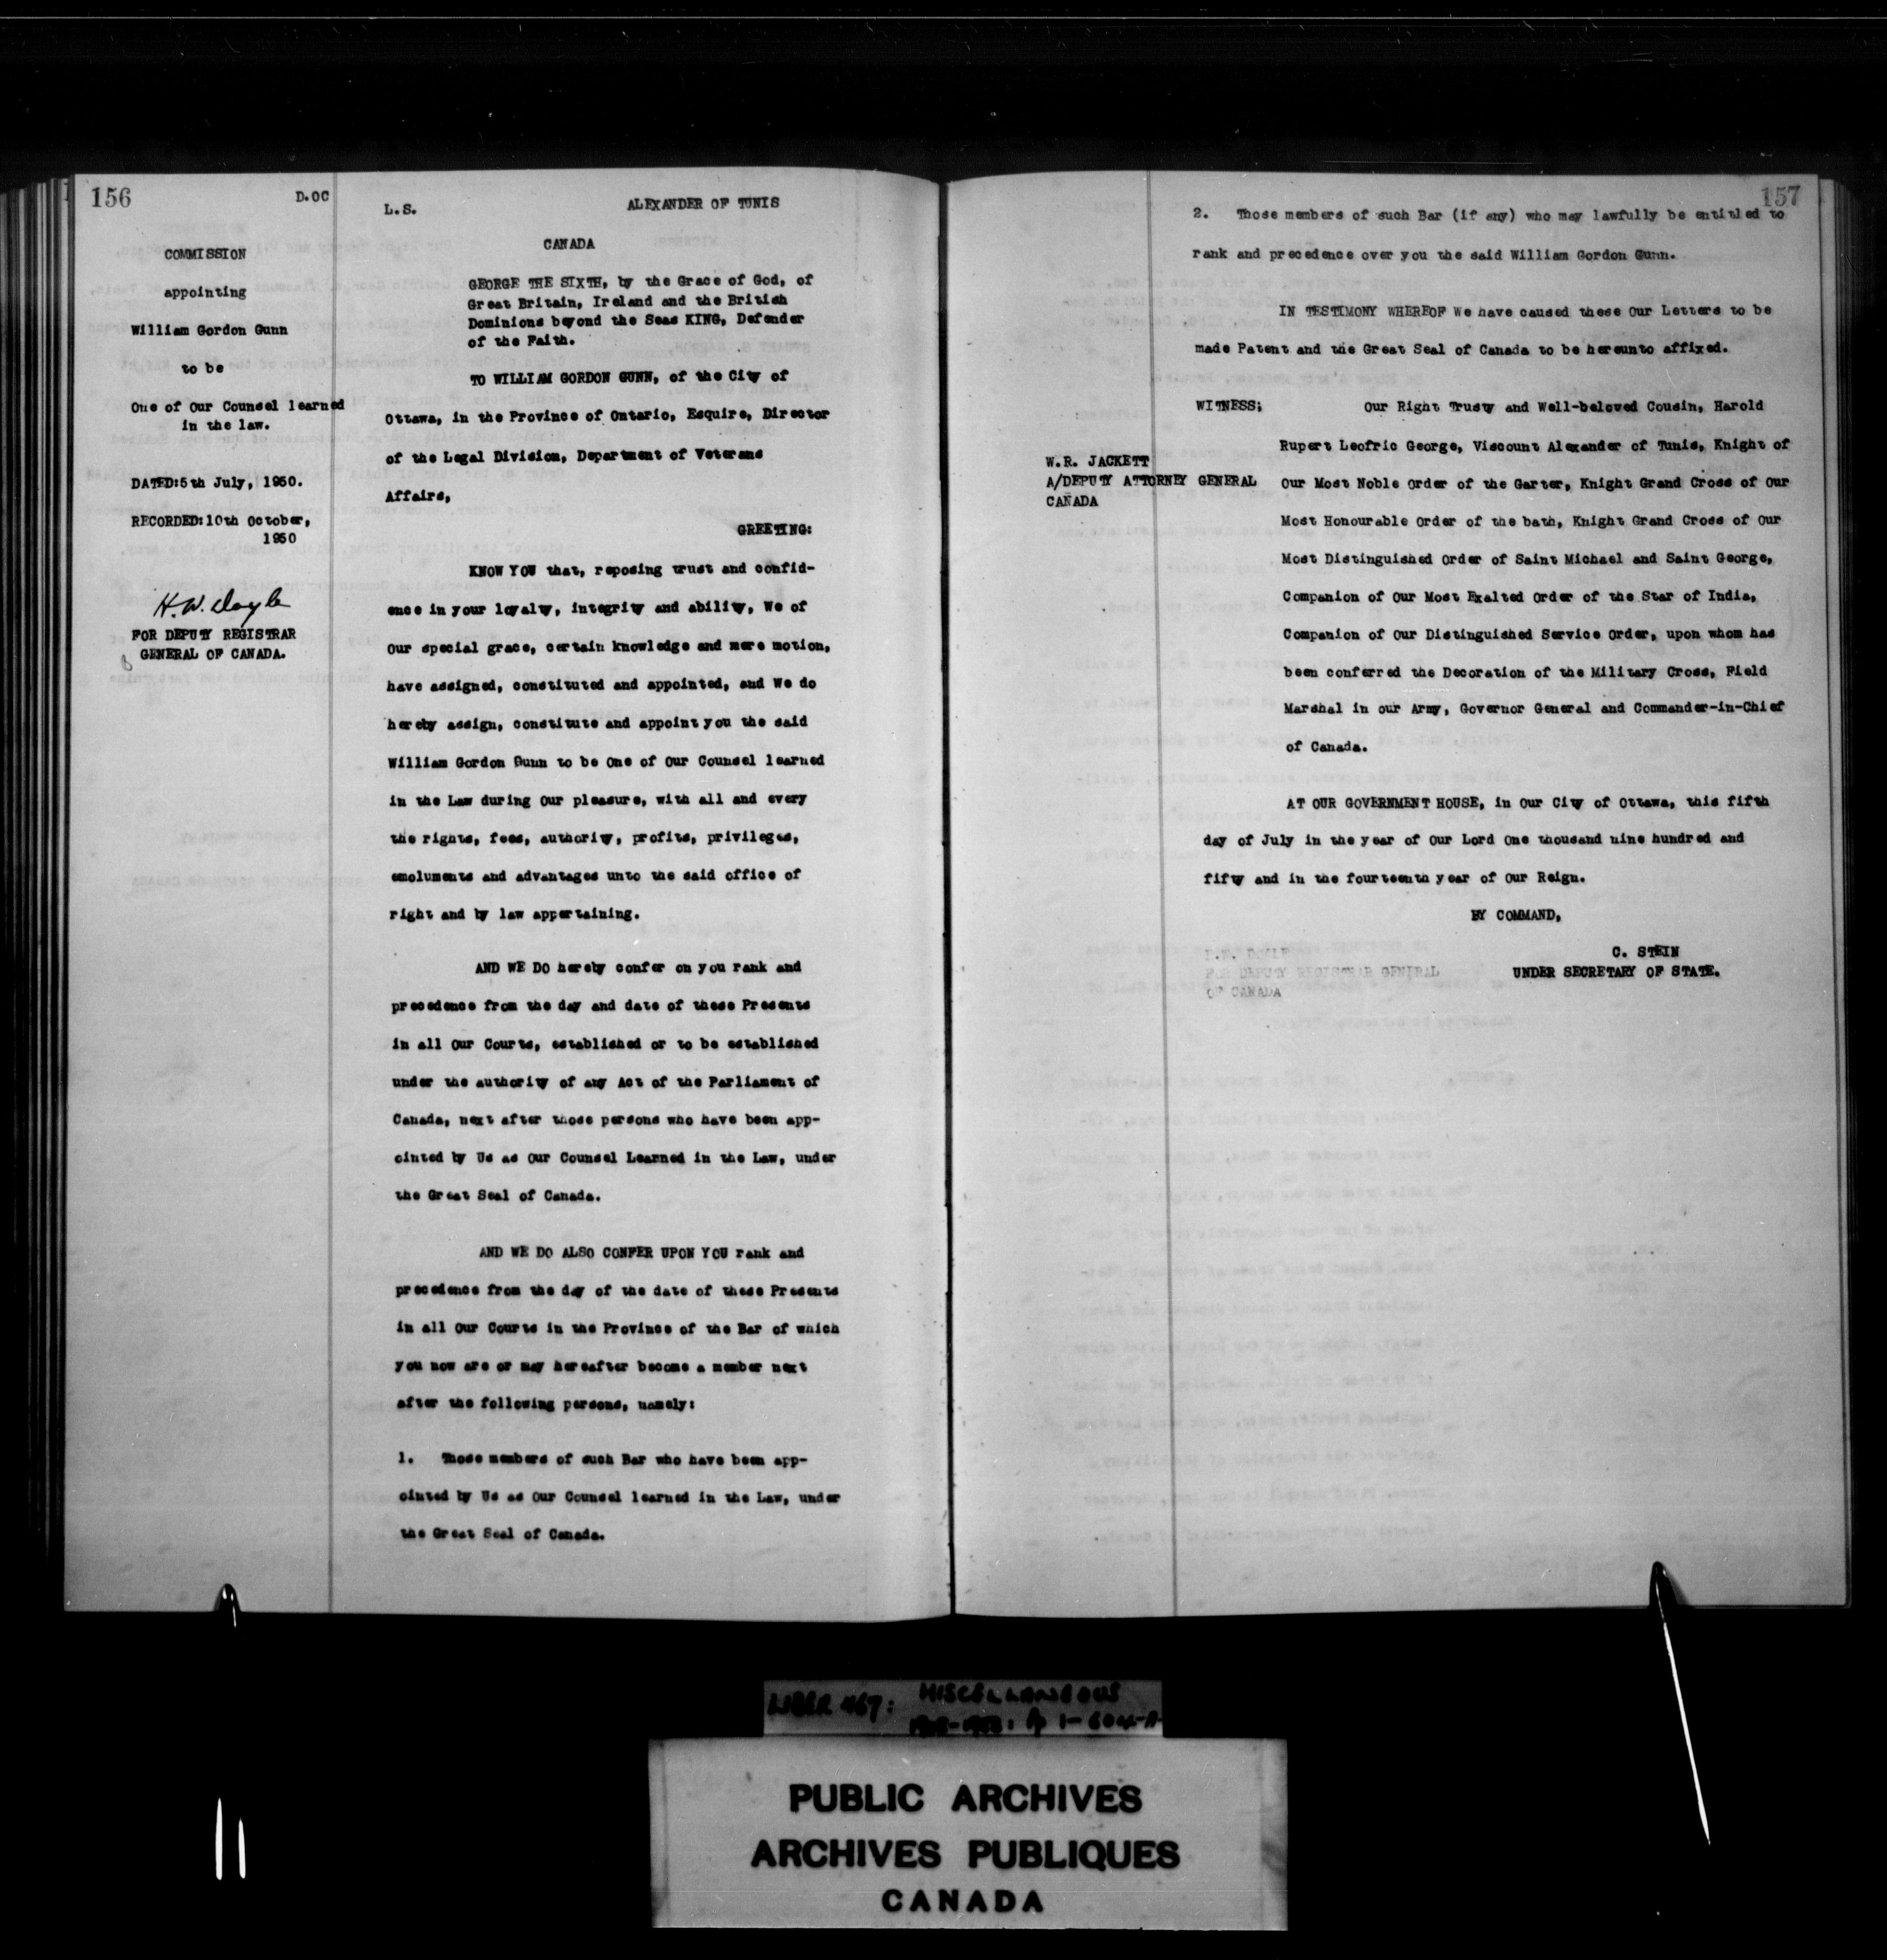 156
D.OC
COMMISSION
appointing
William Gordon Gunn
to be
One of Our Counsel learned
in the law.
DATED:5th July, 1950.
RECORDED:10th October,
1950
H.W. Doyle
FOR DEPUTY REGISTRAR
GENERAL OF CANADA.
L.S.
ALEXANDER OF TUNIS
CANADA
GEORGE THE SIXTH, by the Grace of God, of
Great Britain, Ireland and the British
Dominions beyond the Seas KING, Defender
of the Faith.
TO WILLIAM GORDON GUNN, of the City of
Ottawa, in the Province of Ontario, Esquire, Director
of the Legal Division, Department of Veterans
Affairs,
GREETING:
KNOW YOU that, reposing trust and confid-
ence in your loyalty, integrity and ability, We of
Our special grace, certain knowledge and mere motion,
have assigned, constituted and appointed, and We do
hereby assign, constitute and appoint you the said
William Gordon Gunn to be One of Our Counsel learned
in the Law during Our pleasure, with all and every
the rights, fees, authority, profits, privileges,
emoluments and advantages unto the said office of
right and by law appertaining.
AND WE DO hereby confer on you rank and
precedence from the day and date of these Presents
in all Our Courts, established or to be established
under the authority of any Act of the Parliament of
Canada, next after those persons who have been app-
ointed by Us as Our Counsel Learned in the Law, under
the Great Seal of Canada.
AND WE DO ALSO CONFER UPON YOU rank and
precedence from the day of the date of these Presents
in all Our Courts in the Province of the Bar of which
you now are or may hereafter become a member next
after the following persons, namely:
1. Those members of such Bar who have been app-
ointed by Us as Our Counsel learned in the Law, under
the Great Seal of Canada.
157
2. Those members of such Bar (if any) who may lawfully be entitled to
rank and precedence over you the said William Gordon Gunn.
IN TESTIMONY WHEREOF We have caused these Our Letters to be
made Patent and the Great Seal of Canada to be hereunto affixed.
WITNESS; Our Right Trusty and Well-beloved Cousin, Harold
Rupert Leofric George, Viscount Alexander of Tunis, Knight of
Our Most Noble Order of the Garter, Knight Grand Cross of Our
Most Honourable Order of the bath, Knight Grand Cross of Our
Most Distinguished Order of Saint Michael and Saint George,
Companion of Our Most Exalted Order of the Star of India,
Companion of Our Distinguished Service Order, upon whom has
been conferred the Decoration of the Military Cross, Field
Marshal in our Army, Governor General and Commander-in-Chief
of Canada.
W.R. JACKETT
A/DEPUTY ATTORNEY GENERAL
CANADA
AT OUR GOVERNMENT HOUSE, in Our City of Ottawa, this fifth
day of July in the year of Our Lord One thousand nine hundred and
fifty and in the fourteenth year of Our Reign.
BY COMMAND,
C. STEIN
UNDER SECRETARY OF STATE.
FOR DEPUTY REGISTRAR GENERAL
OF CANADA
LIBER 467: MISCELLANEOUS
PUBLIC ARCHIVES
ARCHIVES PUBLIQUES
CANADA